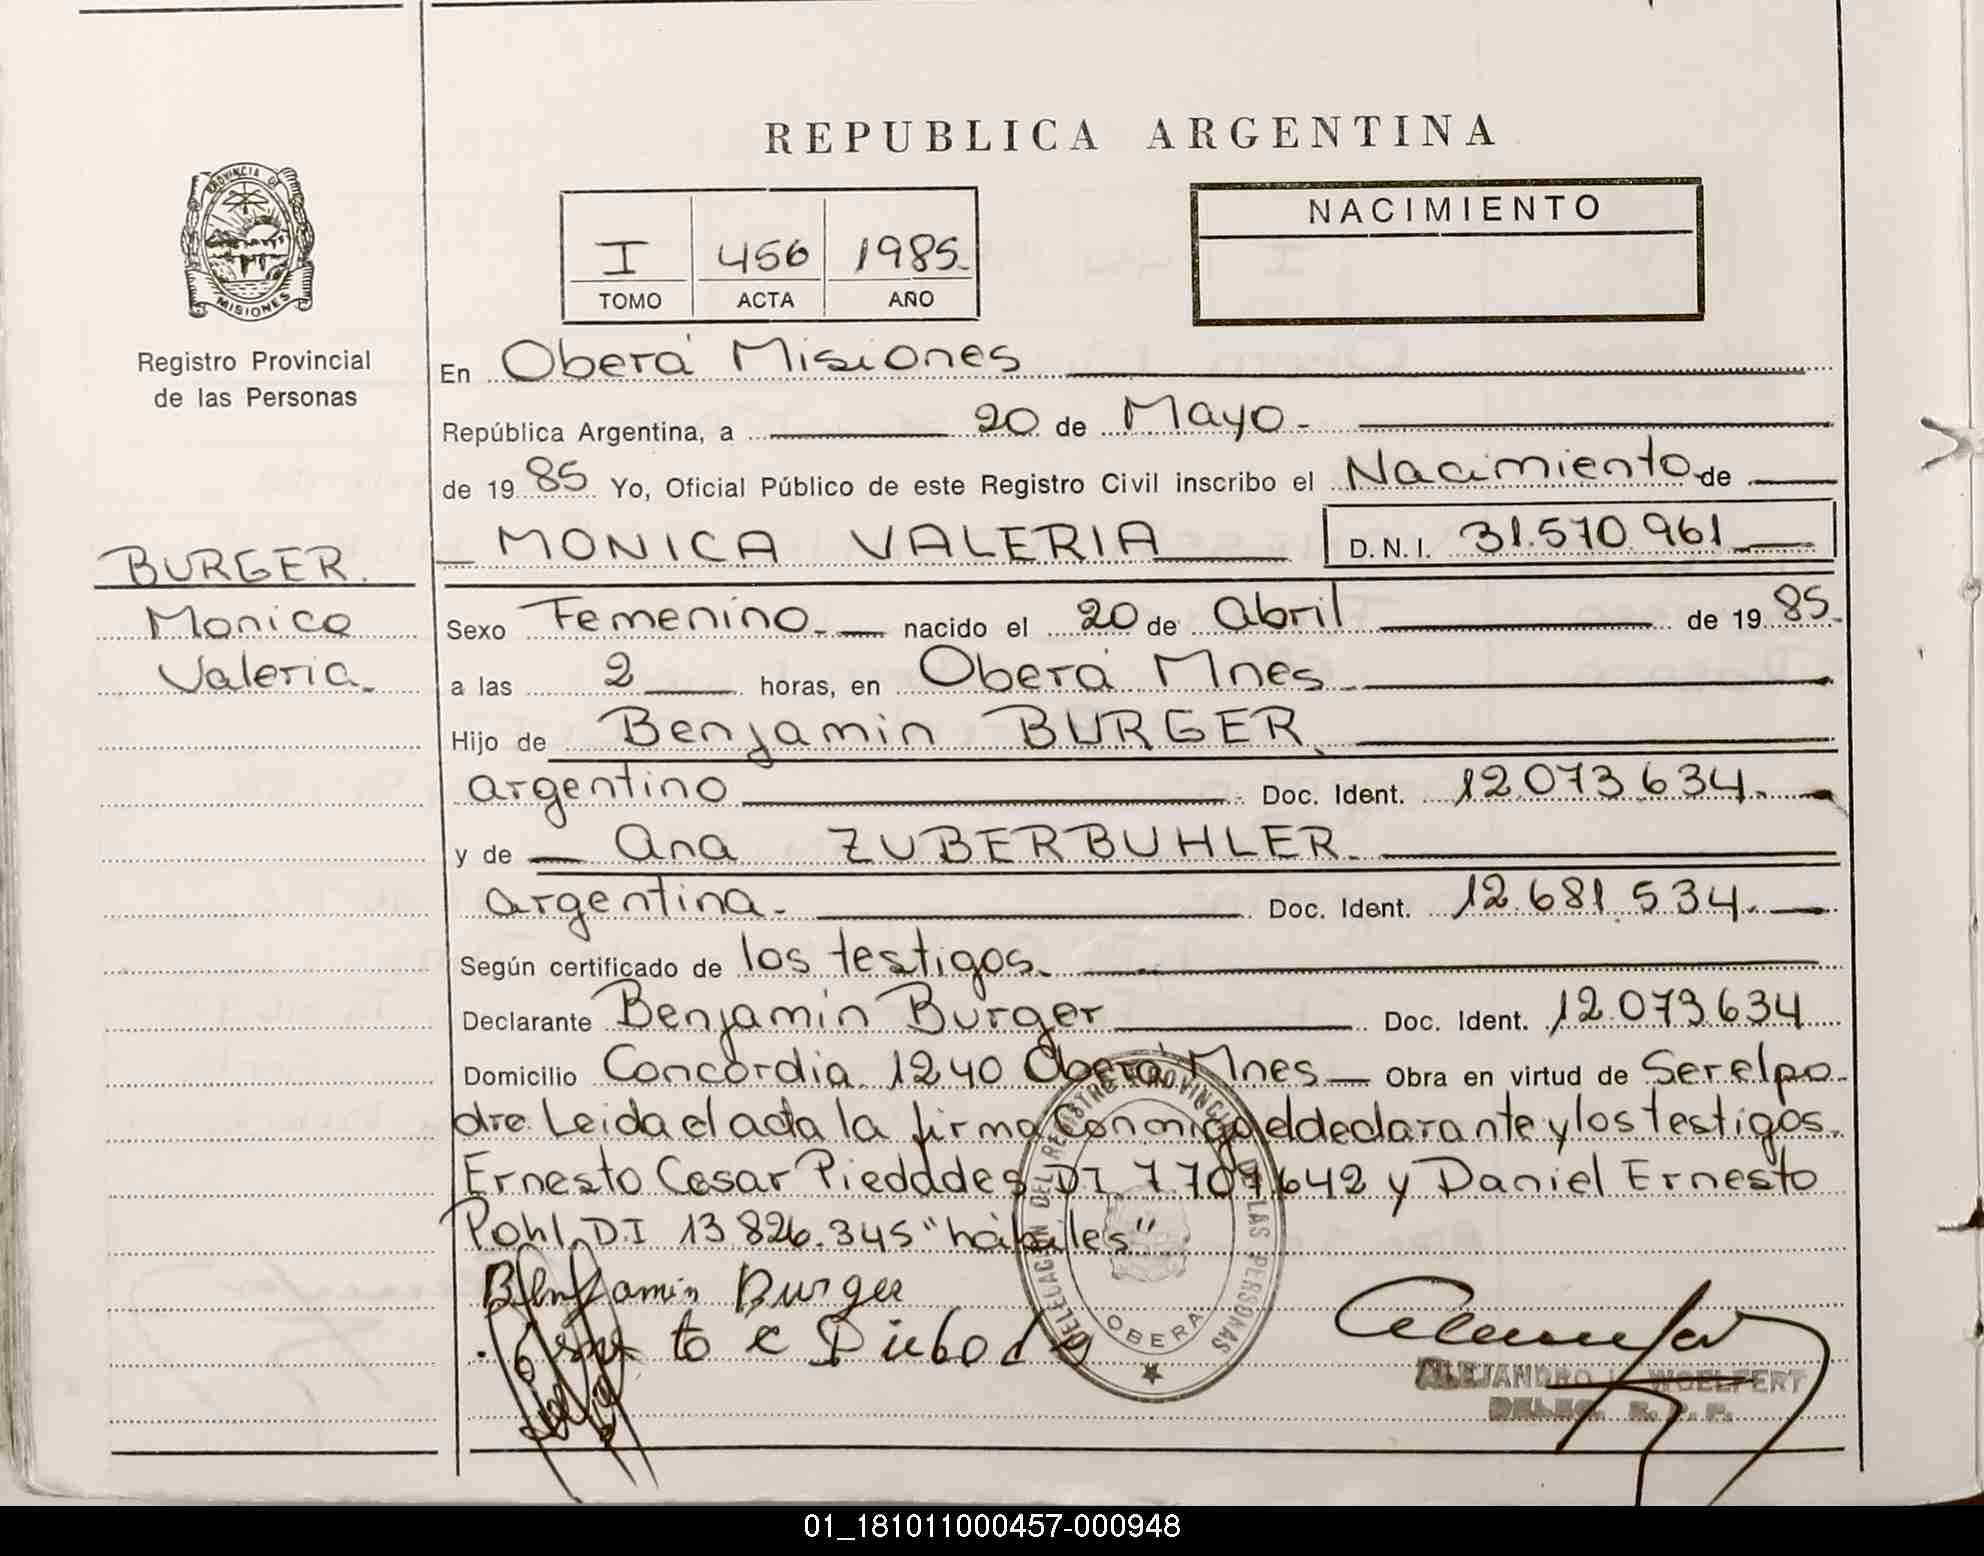 REPUBLICA ARGENTINA
PROVINCIA DE
MISIONES
Registro Provincial
de las Personas
I 456 1985.
TOMO ACTA AÑO
NACIMIENTO
En Oberá Misiones
República Argentina, a 20 de Mayo.-
de 19 85 Yo, Oficial Público de este Registro Civil inscribo el Nacimiento de
MONICA VALERIA D.N.I. 31.570.961
BURGER.
Monica
Valeria.
Sexo Femenino. nacido el 20 de abril de 19 85.
a las 2 horas, en Oberá Mnes
Hijo de Benjamin BURGER.
argentino Doc. Ident. 12.073.634.
y de Ana ZUBERBUHLER.
argentina. Doc. Ident. 12.681.534.
Según certificado de los testigos.
Declarante Benjamin Burger Doc. Ident. 12.073.634
Domicilio Concordia 1240 Oberá Mnes Obra en virtud de Ser el pa
dre. Leida el acta la firma conmigo el declarante y los testigos.
Ernesto Cesar Piedddes DI 7.707.642 y Daniel Ernesto
Pohl D.I 13.826.345 "hábiles"
Benjamin Burger
DELEGACION DEL REGISTRO PROVINCIAL DE LAS PERSONAS
OBERA
ALEJANDRO WOELFERT
DELEG. R. P. P.
01_181011000457-000948